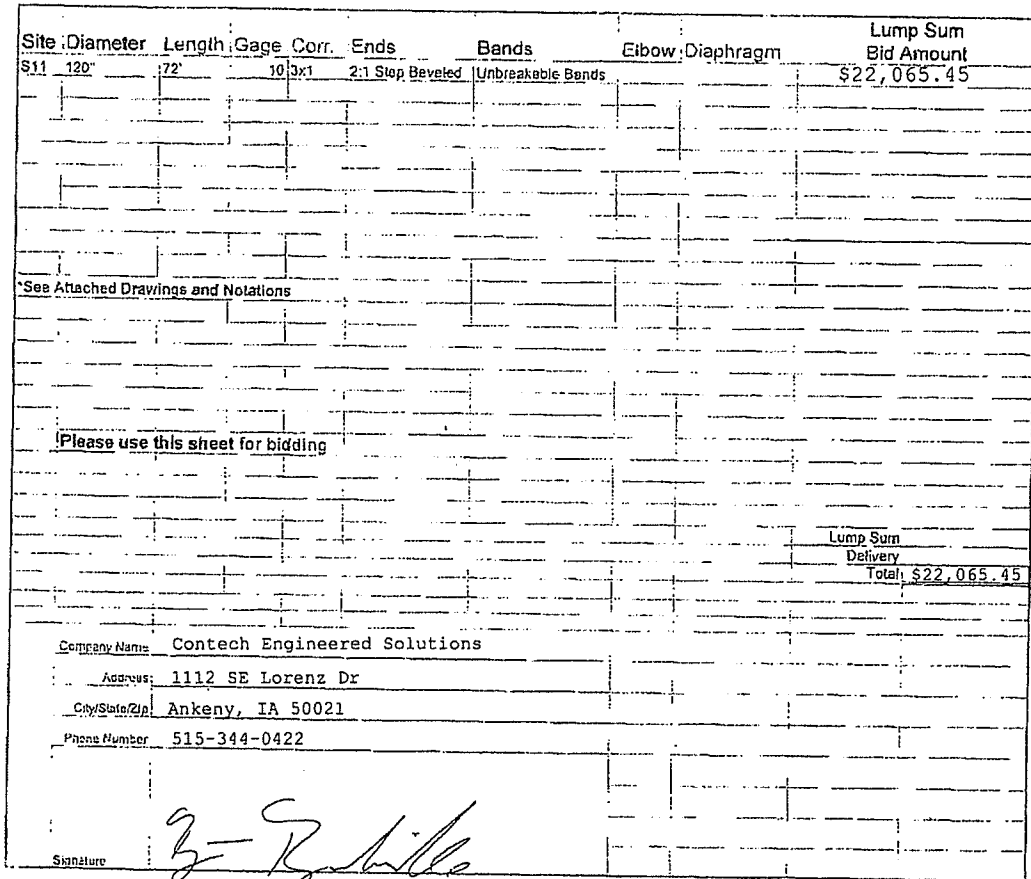 Site Diameter Length Gage Corr. Ends Bands Elbow Diaphragm Lump Sum Bid Amount
S11 120" 72' 10 3x1 2:1 Step Beveled Unbreakable Bands $22,065.45
*See Attached Drawings and Notations
Please use this sheet for bidding
Lump Sum
Delivery
Total $22,065.45
Company Name Contech Engineered Solutions
Address: 1112 SE Lorenz Dr
City/State/Zip Ankeny, IA 50021
Phone Number 515-344-0422
Signature